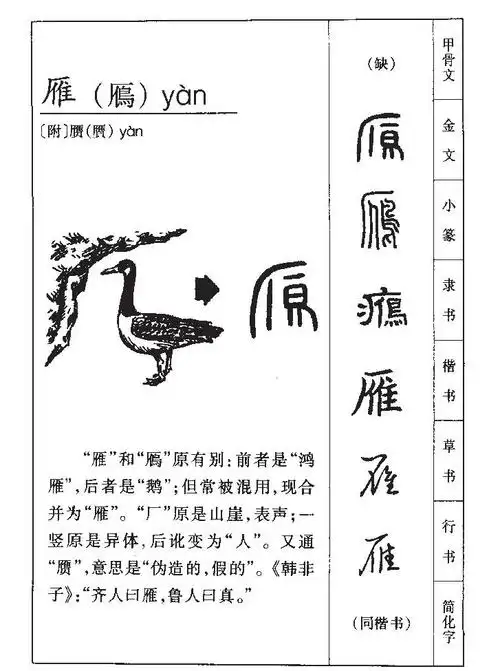 雁（鴈）yàn
〔附〕赝(贗) yàn
“雁”和“鴈”原有别：前者是“鸿
雁”，后者是“鹅”；但常被混用，现合
并为“雁”。“厂”原是山崖，表声；一
竖原是异体，后讹变为“人”。又通
“赝”，意思是“伪造的，假的”。《韩非
子》：“齐人曰雁，鲁人曰真。”
（缺）
甲骨文
金文
小篆
隶书
雁
楷书
草书
雁
行书
（同楷书）
简化字